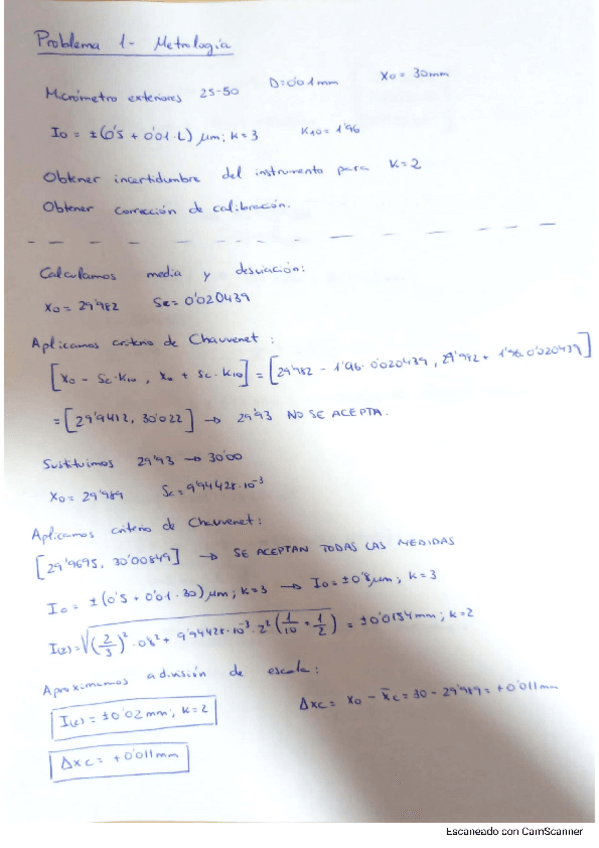 Problema 1- Metrología
Micrómetro exteriores 25-50 D=0'01mm X0 = 30mm
I0 = ±(0'5 + 0'01·L) μm; k=3 K10= 1'96
Obtener incertidumbre del instrumento para K=2
Obtener corrección de calibración.
Calculamos media y desviación:
X0 = 29'982 Sc= 0'020439
Aplicamos criterio de Chauvenet:
[X0 - Sc·K10, X0 + Sc·K10] = [29'982 - 1'96·0'020439, 29'982 + 1'96·0'020439]
= [29'9412, 30'022] → 29'93 NO SE ACEPTA.
Sustituimos 29'93 → 30'00
X0 = 29'989 Sc = 9'94428·10^-3
Aplicamos criterio de Chauvenet:
[29'9695, 30'00849] → SE ACEPTAN TODAS LAS MEDIDAS
I0 = ±(0'5 + 0'01·30) μm; k=3 → I0 = ±0'8μm; K=3
I(2)=√((2/3)^2·0'8^2 + 9'94428·10^-3·2^2(1/10 + 1/2)) = ±0'0154mm; k=2
Aproximamos a división de escala:
I(2) = ±0'02mm; K=2
Δxc = x0 - x̄c = 30 - 29'989 = +0'011mm
Δxc = +0'011mm
Escaneado con CamScanner